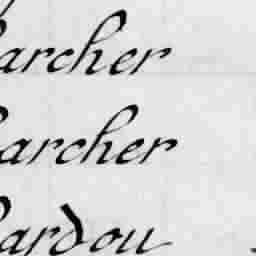 archer
archer
ardou